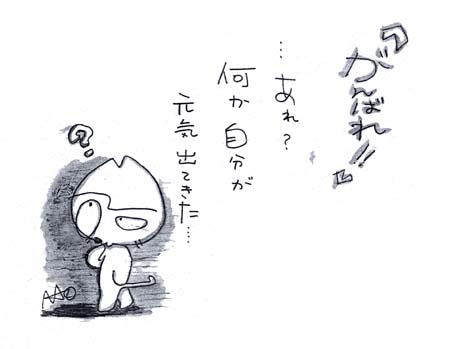 『がんばれ!!』
…あれ?
何か自分が
元気出てきた…
?